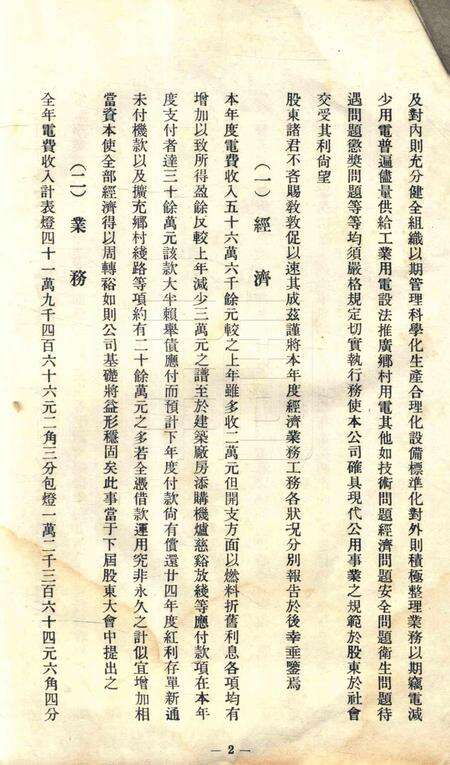 及對內則充分健全組織以期管理科學化生產合理化設備標準化對外則積極整理業務以期竊電減
少用電普遍儘量供給工業用電設法推廣鄉村用電其他如技術問題經濟問題安全問題衛生問題待
遇問題懲獎問題等等均須嚴格規定切實執行務使本公司確具現代公用事業之規範於股東於社會
交受其利尙望
股東諸君不吝賜敎敦促以速其成茲謹將本年度經濟業務工務各狀况分別報告於後幸垂鑒焉
(一) 經濟
本年度電費收入五十六萬六千餘元較之上年雖多收二萬元但開支方面以燃料折舊利息各項均有
增加以致所得盈餘反較上年減少三萬元之譜至於建築廠房添購機爐慈谿放綫等應付款項在本年
度支付者達三十餘萬元該款大半賴舉債應付而預計下年度付款尙有償還廿四年度紅利存單新通
未付機款以及擴充鄉村綫路等項約有二十餘萬元之多若全憑借款運用究非永久之計似宜增加相
當資本使全部經濟得以周轉裕如則公司基礎將益形穩固矣此事當于下屆股東大會中提出之
(二) 業務
全年電費收入計表燈四十一萬九千四百六十六元二角三分包燈一萬二千三百六十四元六角四分
— 2 —